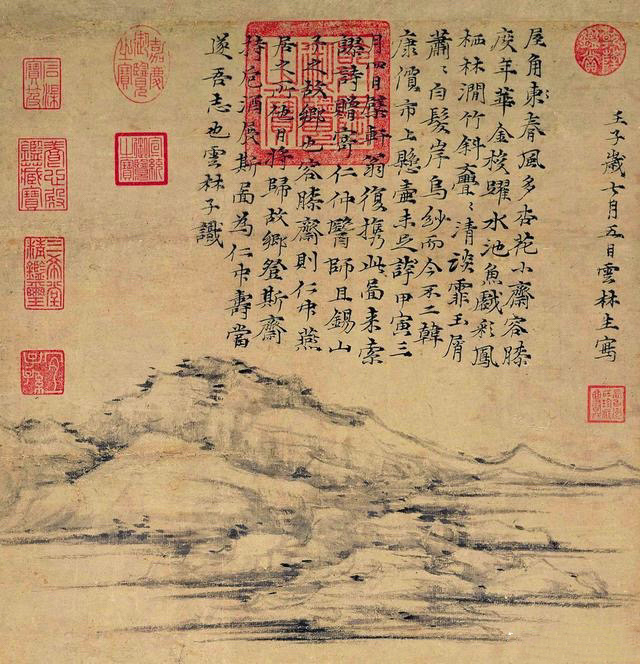 壬子歲七月五日雲林生寫
屋角東春風多杏花小齋容膝
度年華金梭躍水池魚戲彩鳳
栖林澗竹斜亹〻清談霏玉屑
蕭〻白髮岸烏紗而今不二韓
康價市上懸壺未足誇甲寅三
月四日檗軒翁復携此啚来索
謬詩贈寄仁仲醫師且錫山
予之故鄉也容膝齋則仁仲燕
居之所他日將歸故鄉登斯齋
持巵酒展斯啚為仁仲壽當
遂吾志也雲林子識
嘉慶御覽之寶
石渠寶笈
宣統御覽之寶
養心殿鑑藏寶
三希堂精鑑璽
宜子孫